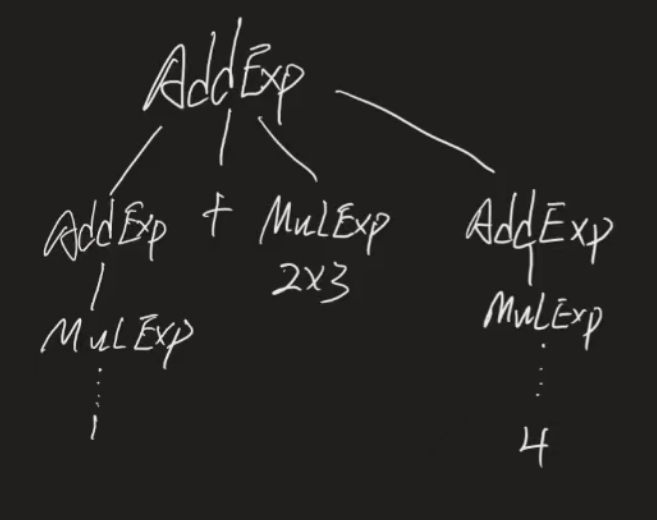 AddExp
AddExp + MulExp AddExp
2x3
MulExp MulExp
1 4